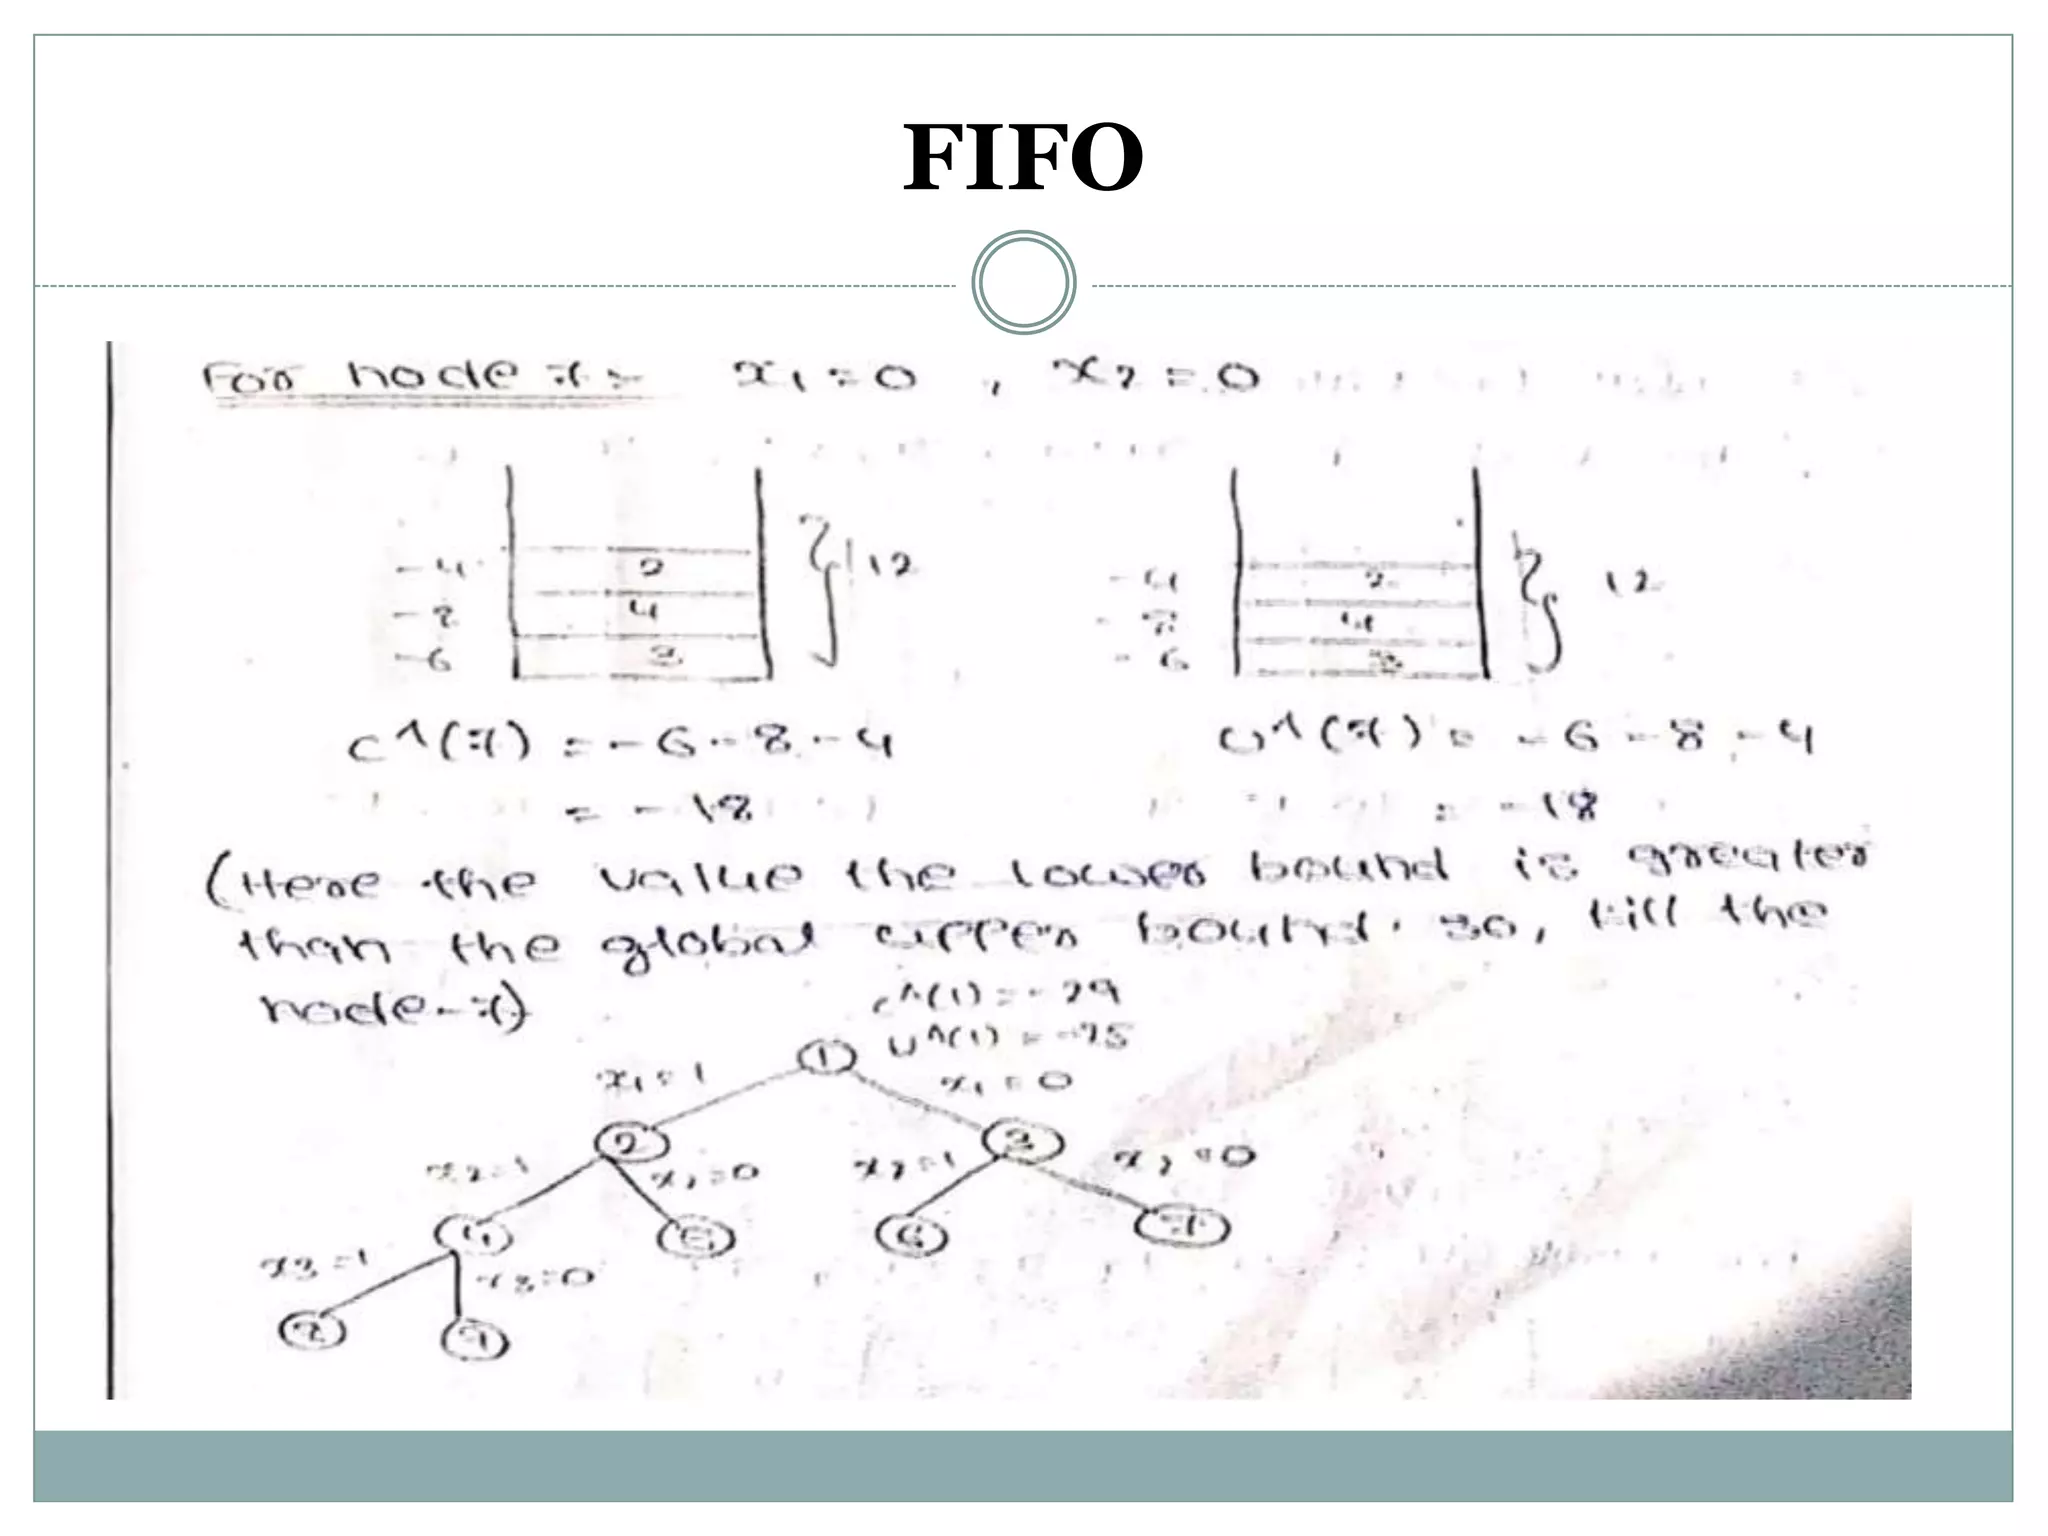 FIFO
For node 7:- x1=0 , x2=0
-4 2 } 12 -4 2 } 12
-8 4 -8 4
-6 3 -6 3
c^(7) = -6-8-4 u^(7) = -6-8-4
= -18 = -18
(Here the value the lower bound is greater
than the global upper bound. so, kill the
node-7)
c^(1) = -29
u^(1) = -25
1
x1=1 x1=0
2 3
x2=1 x2=0 x2=1 x2=0
4 5 6 7
x3=1 x3=0
8 9